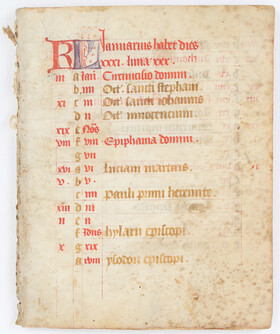 KL Ianuarius habet dies
xxxi. luna xxx.
iii a Ian̄. Circuncisio domini.
b iiii Oct̄. sancti stephani.
xi c iii Oct̄. sancti iohannis
d ii Oct̄. innocentium.
xix e Nōs
viii f viii Epiphania domini.
g vii
xvi a vi Luciani martiris.
v b v
c iiii Pauli primi heremite.
xiii d iii
ii e ii
f Idus hylarii episcopi.
x g xix
a xviii episcopi.